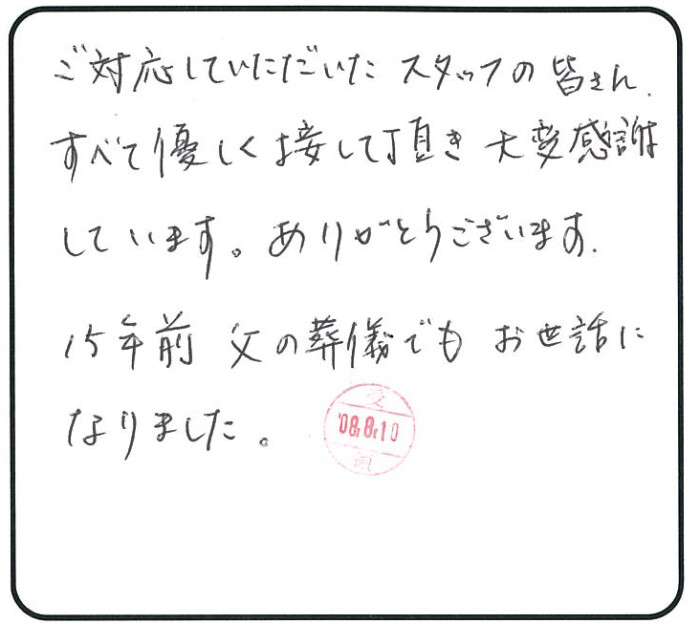 ご対応していただいた スタッフの 皆さん、
すべて優しく接して頂き 大変感謝
しています。ありがとうございます。
15年前 父の葬儀でも お世話に
なりました。
受
'08.8.10